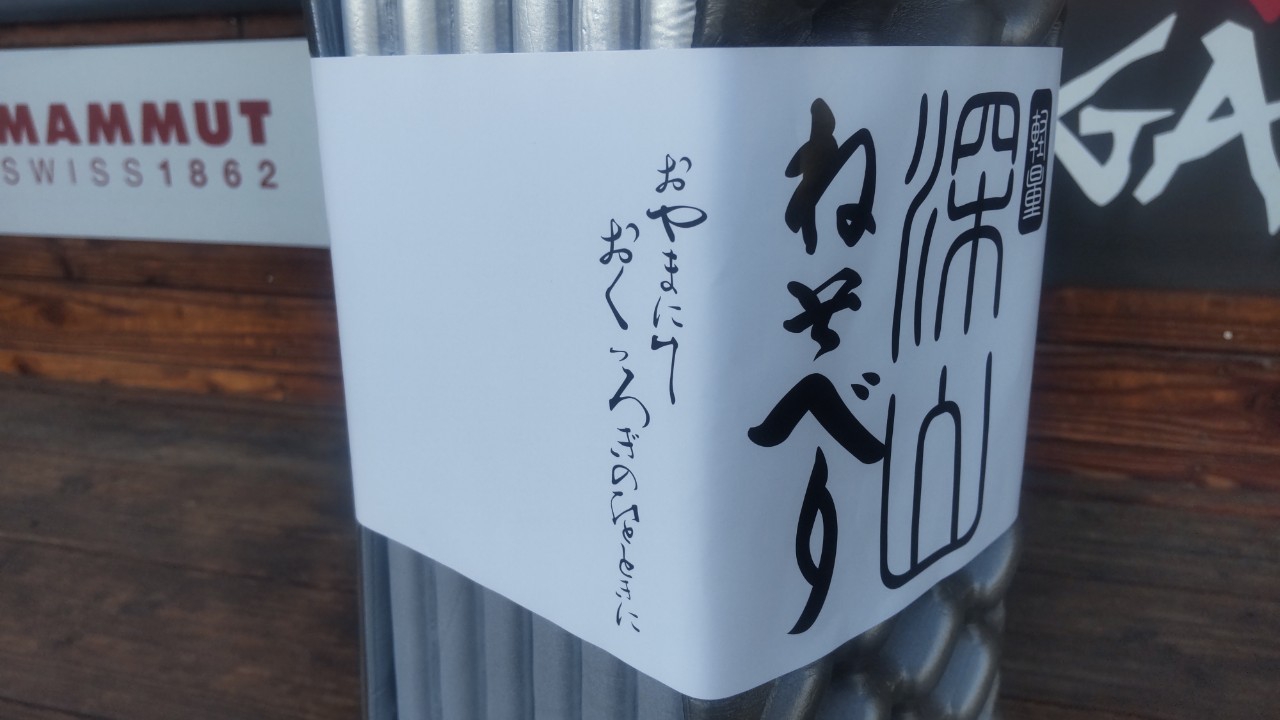 MAMMUT
SWISS1862
深山
ねそべり
おやまにて
おくつろぎのひとときに
GA